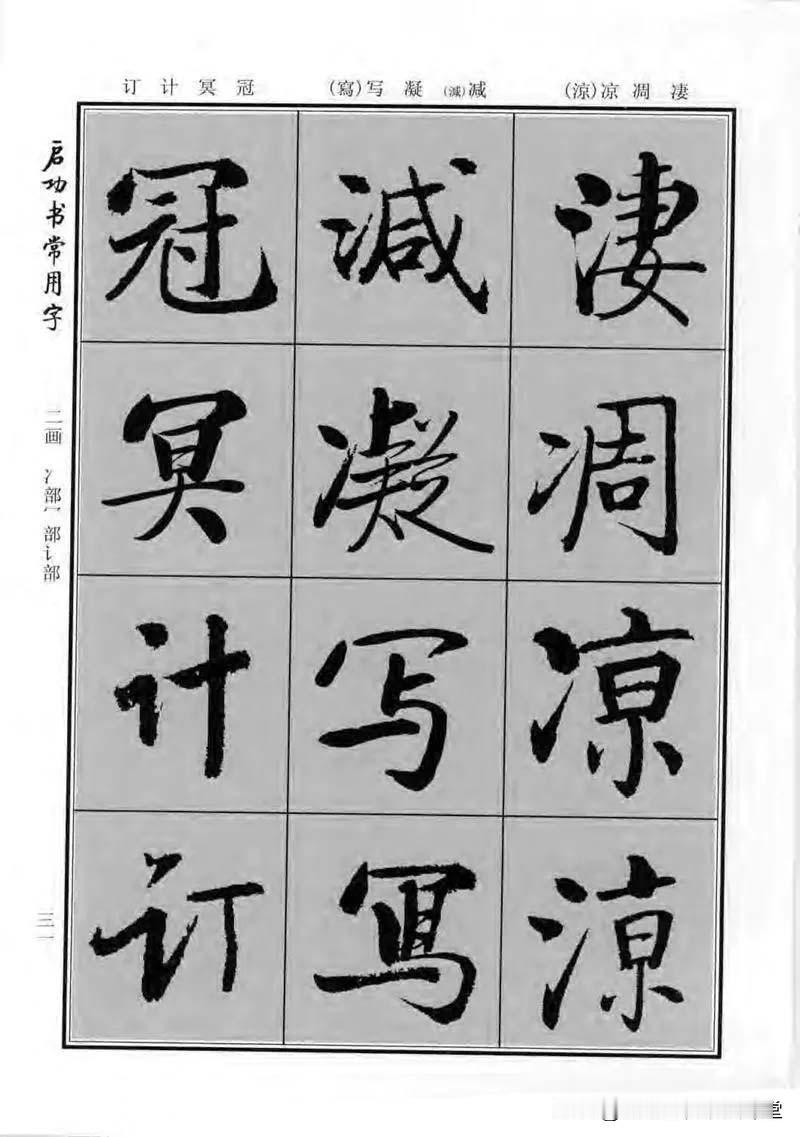 订 计 冥 冠
(寫)写 凝 (減)减
(涼)凉 凋 凄
启功书常用字
二画 冫部冖部讠部
三一
冠 減 淒
冥 凝 凋
计 写 凉
订 寫 涼